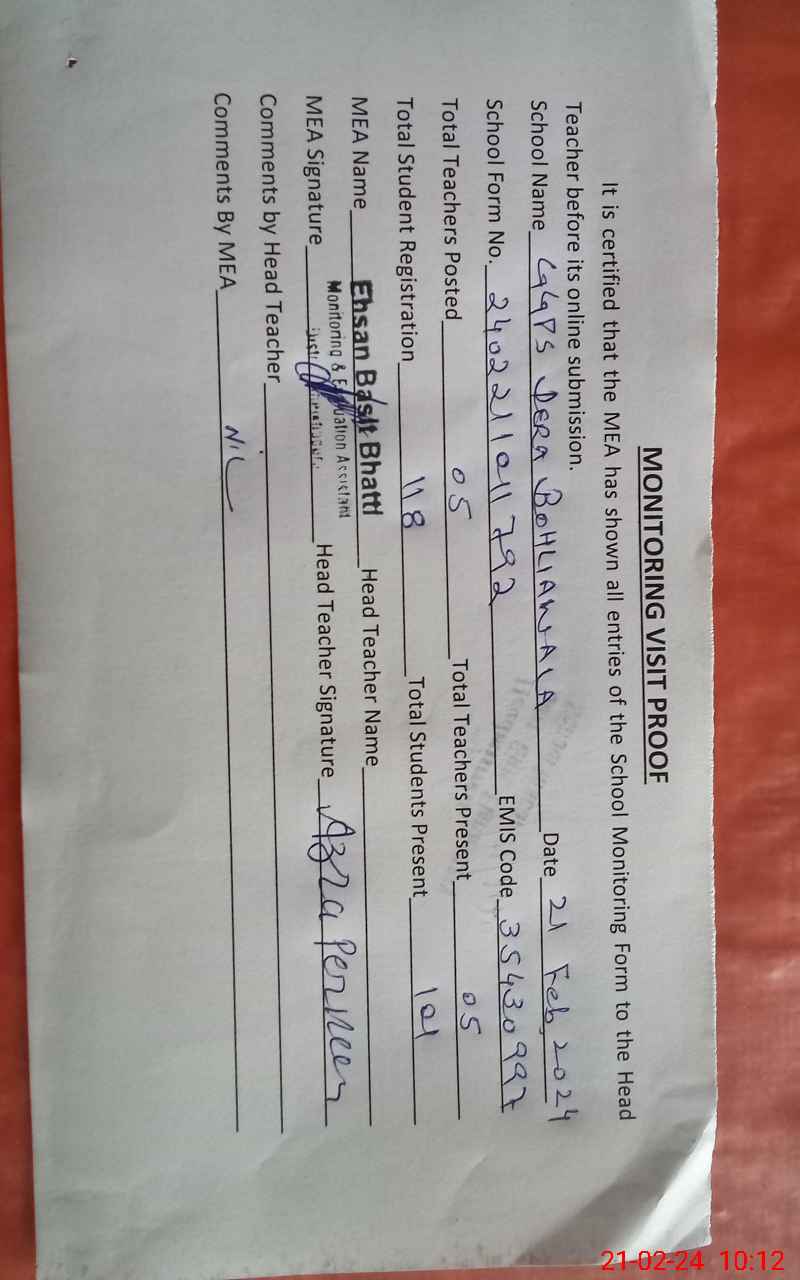 MONITORING VISIT PROOF
It is certified that the MEA has shown all entries of the School Monitoring Form to the Head
Teacher before its online submission.
School Name GGPS DERA BOHLIANWALA Date 21 Feb, 2024
School Form No. 2402211011792 EMIS Code 35430997
Total Teachers Posted 05 Total Teachers Present 05
Total Student Registration 118 Total Students Present 101
MEA Name Ehsan Basit Bhatti Head Teacher Name
Monitoring & Evaluation Assistant
MEA Signature Head Teacher Signature Azra Perveen
Comments by Head Teacher
Comments By MEA Nil
21-02-24 10:12